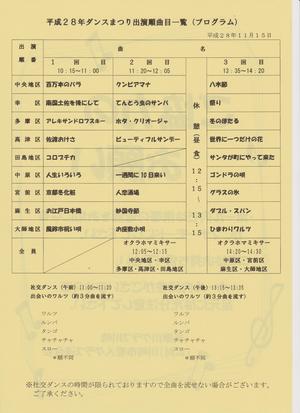 平成28年ダンスまつり出演順曲目一覧（プログラム）
平成28年11月15日
出演順番 曲名
1回 10:15～11:00
2回 11:20～12:05
3回 13:35～14:20
中央地区 百万本のバラ クンビアマナ 八木節
幸区 南国土佐を後にして てんとう虫のサンバ 祭り
多摩区 アレキサンドロフスキー ホタ・クリオージャ 冬のほたる
高津区 佐渡おけさ ビューティフルサンデー 世界に一つだけの花
田島地区 コロブチカ サンタが町にやって来た
中原区 人生いろいろ 一週間に10日来い ゴンドラの唄
宮前区 京都冬化粧 人恋酒場 グラスの氷
麻生区 お江戸日本橋 妙国寺節 ダブル・スパン
大師地区 お座敷小唄 ひまわりワルツ
休憩（昼食） 12:15～13:15
全員
オクラホマミキサー
12:05～12:15
中央地区・幸区
多摩区・高津区・田島地区
オクラホマミキサー
14:20～14:30
中原区・宮前区
麻生区・大師地区
社交ダンス（午前）11:00～11:20
出会いのワルツ（約3分曲を流す）
ワルツ
ルンバ
タンゴ
チャチャチャ
スロー
※順不同
社交ダンス（午後）13:15～13:35
出会いのワルツ（約3分曲を流す）
ワルツ
ルンバ
タンゴ
チャチャチャ
スロー
※順不同
※社交ダンスの時間が限られておりますので全曲を流せない場合がございます。
ご了承ください。